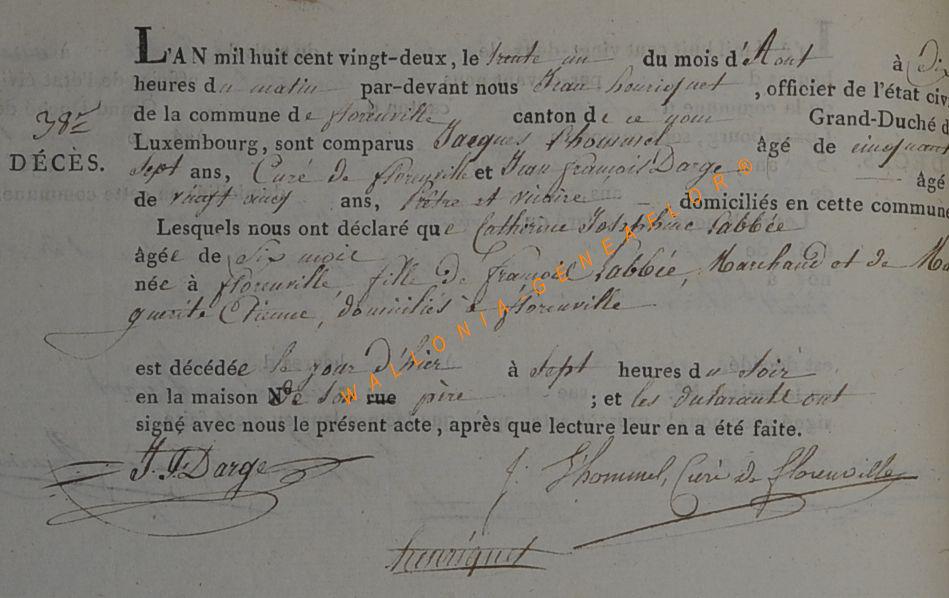 L'AN mil huit cent vingt-deux, le trente un du mois d'Aout à Dix
heures du matin par-devant nous Jean henriquet, officier de l'état civ
38e
de la commune de florenville canton de ce nom Grand-Duché d
DÉCÈS.
Luxembourg, sont comparus Jacques Lhommel âgé de cinquant
sept ans, Curé de florenville et Jean françois Darge âgé
de vingt cinq ans, Prêtre et vicaire domiciliés en cette commune
Lesquels nous ont déclaré que Catherine Josephine Labbée
âgée de six mois
née à florenville fille de françois Labbée, Marchand et de Ma
guerite Etienne, domiciliés à florenville
WALLONIA GENEAFLOR ®
est décédée le jour d'hier à sept heures du soir
en la maison No de son rue père ; et les déclarants ont
signé avec nous le présent acte, après que lecture leur en a été faite.
J. F. Darge
J. Lhommel, Curé de florenville
henriquet